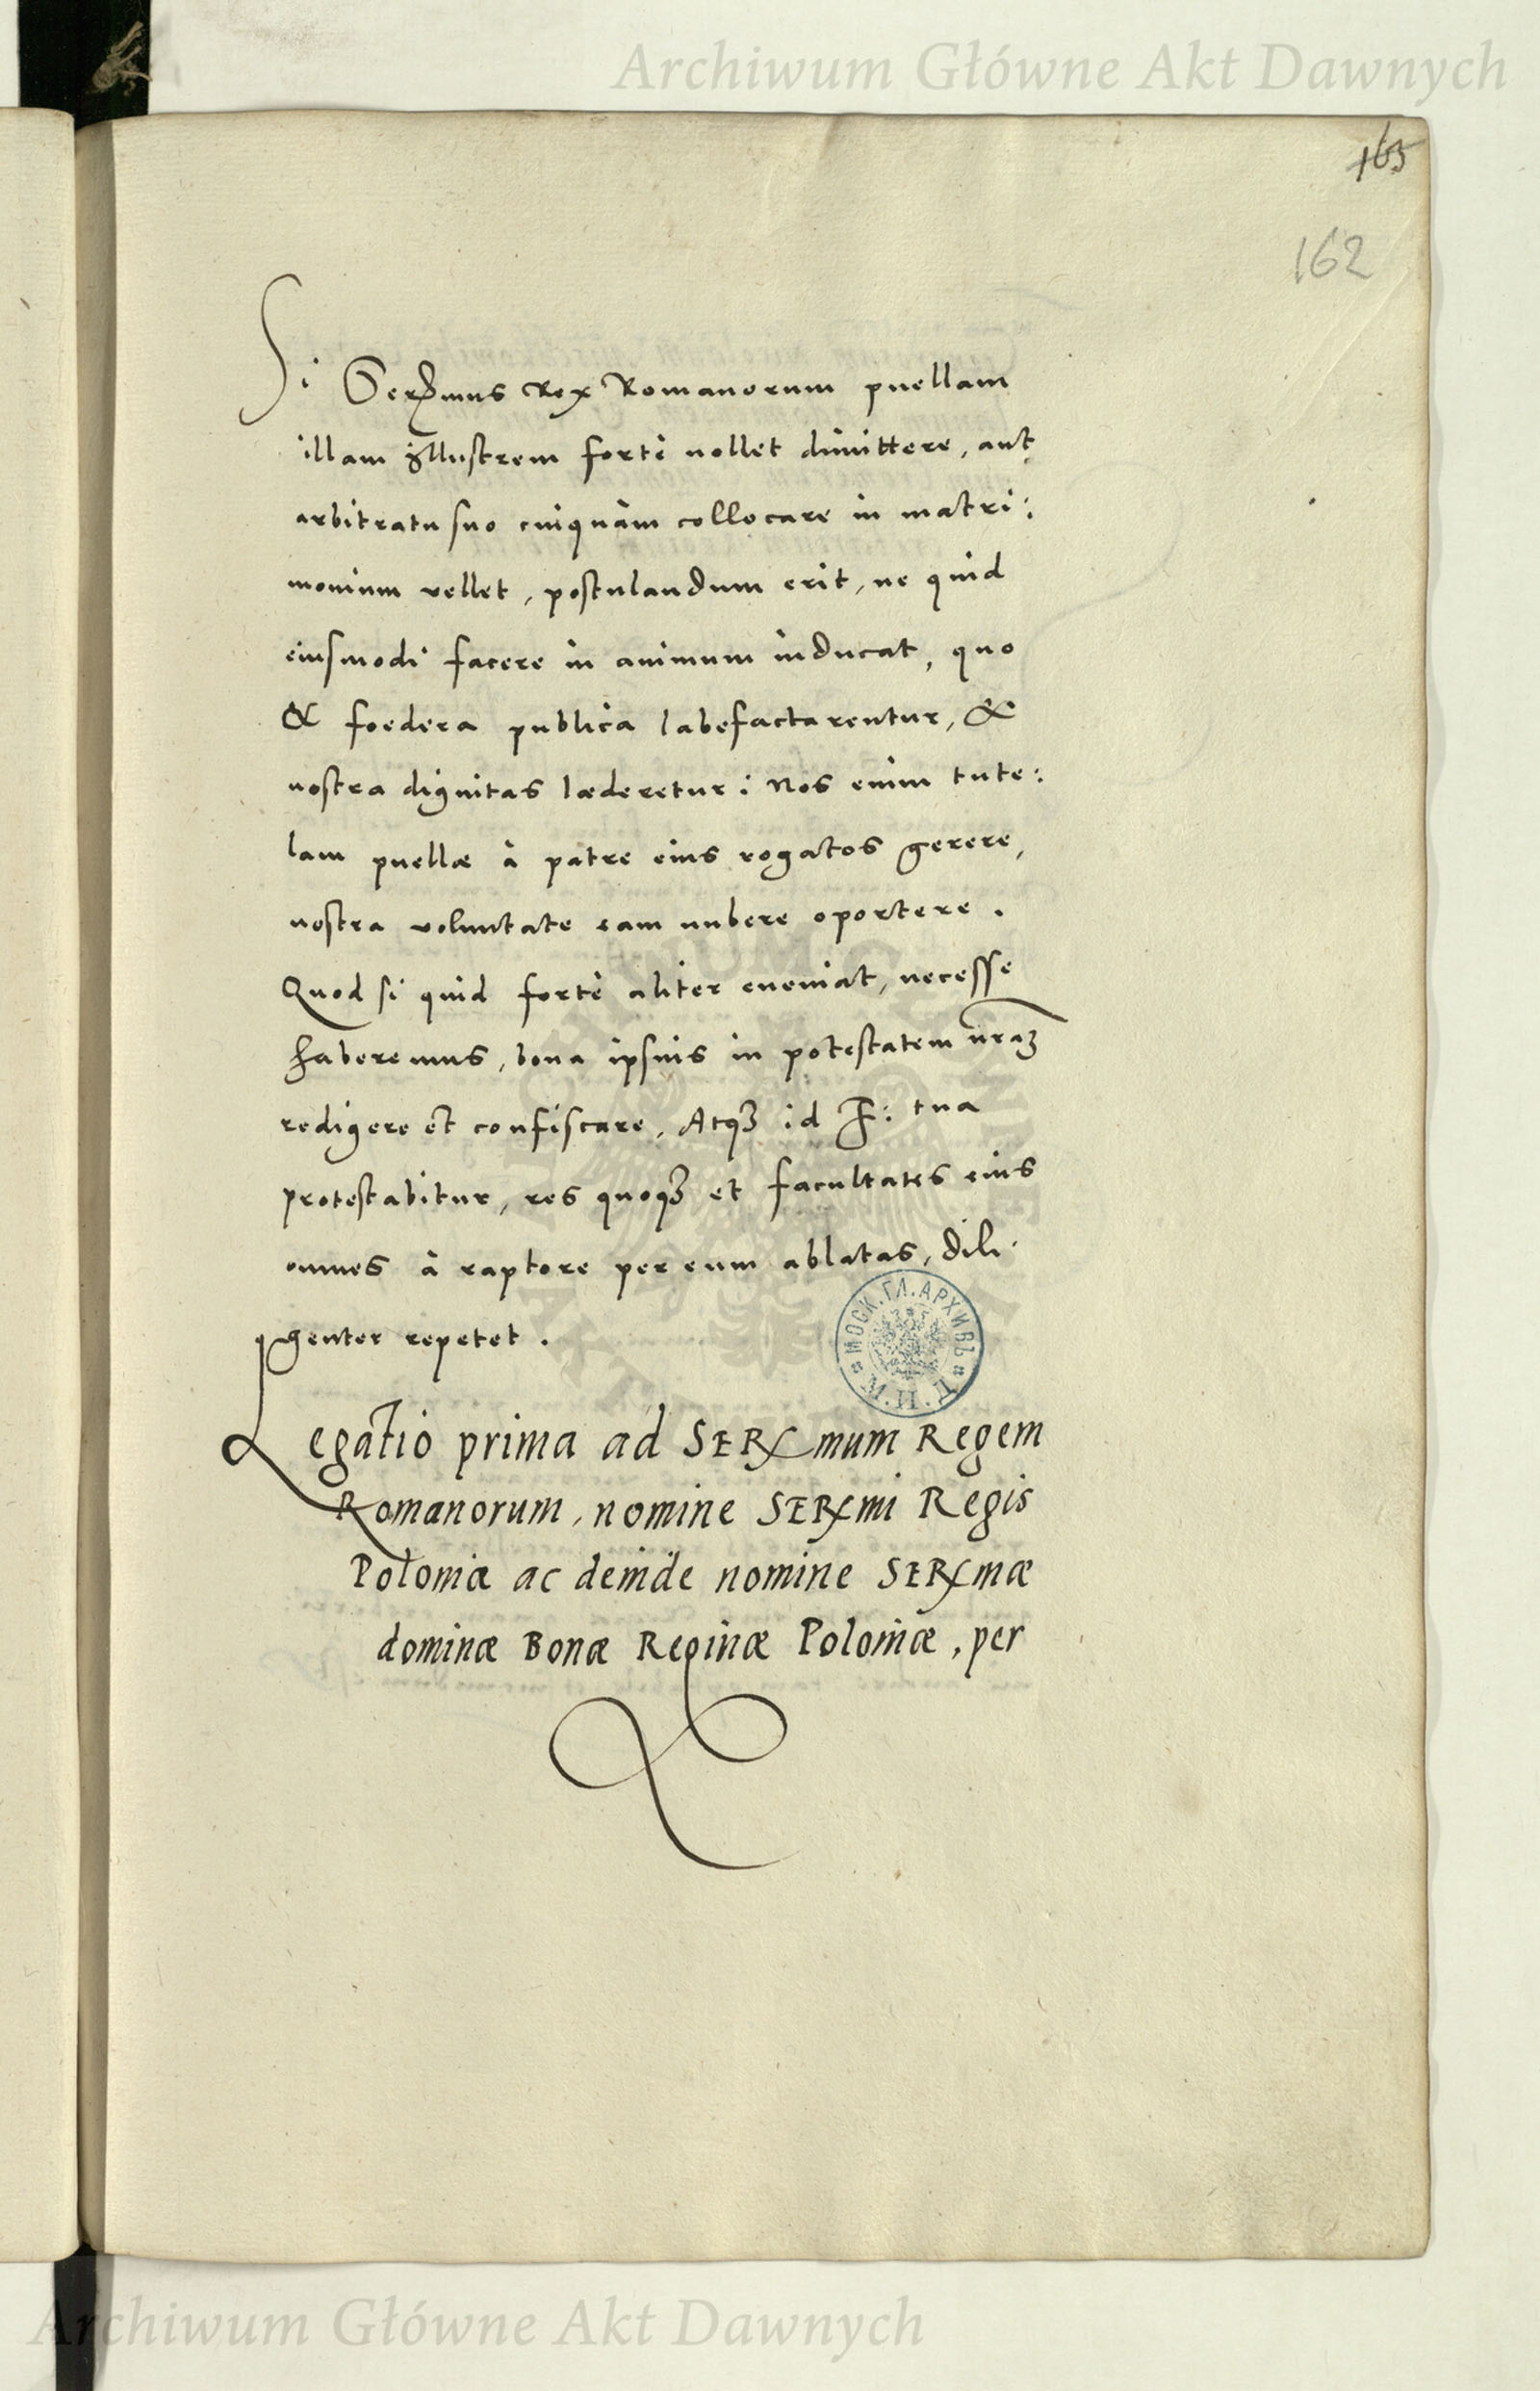 Archiwum Główne Akt Dawnych
165
162
Si Serxmus Rex Romanorum puellam
illam Illustrem fortè nollet dimittere, aut
arbitratu suo cuiquàm collocare in matri:
monium vellet, postulandum erit, ne quid
eiusmodi facere in animum inducat, quo
& foedera publica labefactarentur, &
nostra dignitas læderetur: Nos enim tute:
lam puellæ à patre eius rogatos gerere,
nostra voluntate eam nubere oportere.
Quod si quid fortè aliter eueniat, necesse
haberemus, bona ipsius in potestatem nraꝫ
redigere et confiscare, Atqꝫ id F: tua
protestabitur, res quoqꝫ et facultates eius
omnes à raptore per eum ablatas, dili
genter repetet.
МОСК. ГЛ. АРХИВЪ М.И.Д.
Legatio prima ad SERxmum Regem
Romanorum, nomine SERxmi Regis
Poloniæ ac deinde nomine SERxmæ
dominæ Bonæ Reginæ Poloniæ, per
Archiwum Główne Akt Dawnych